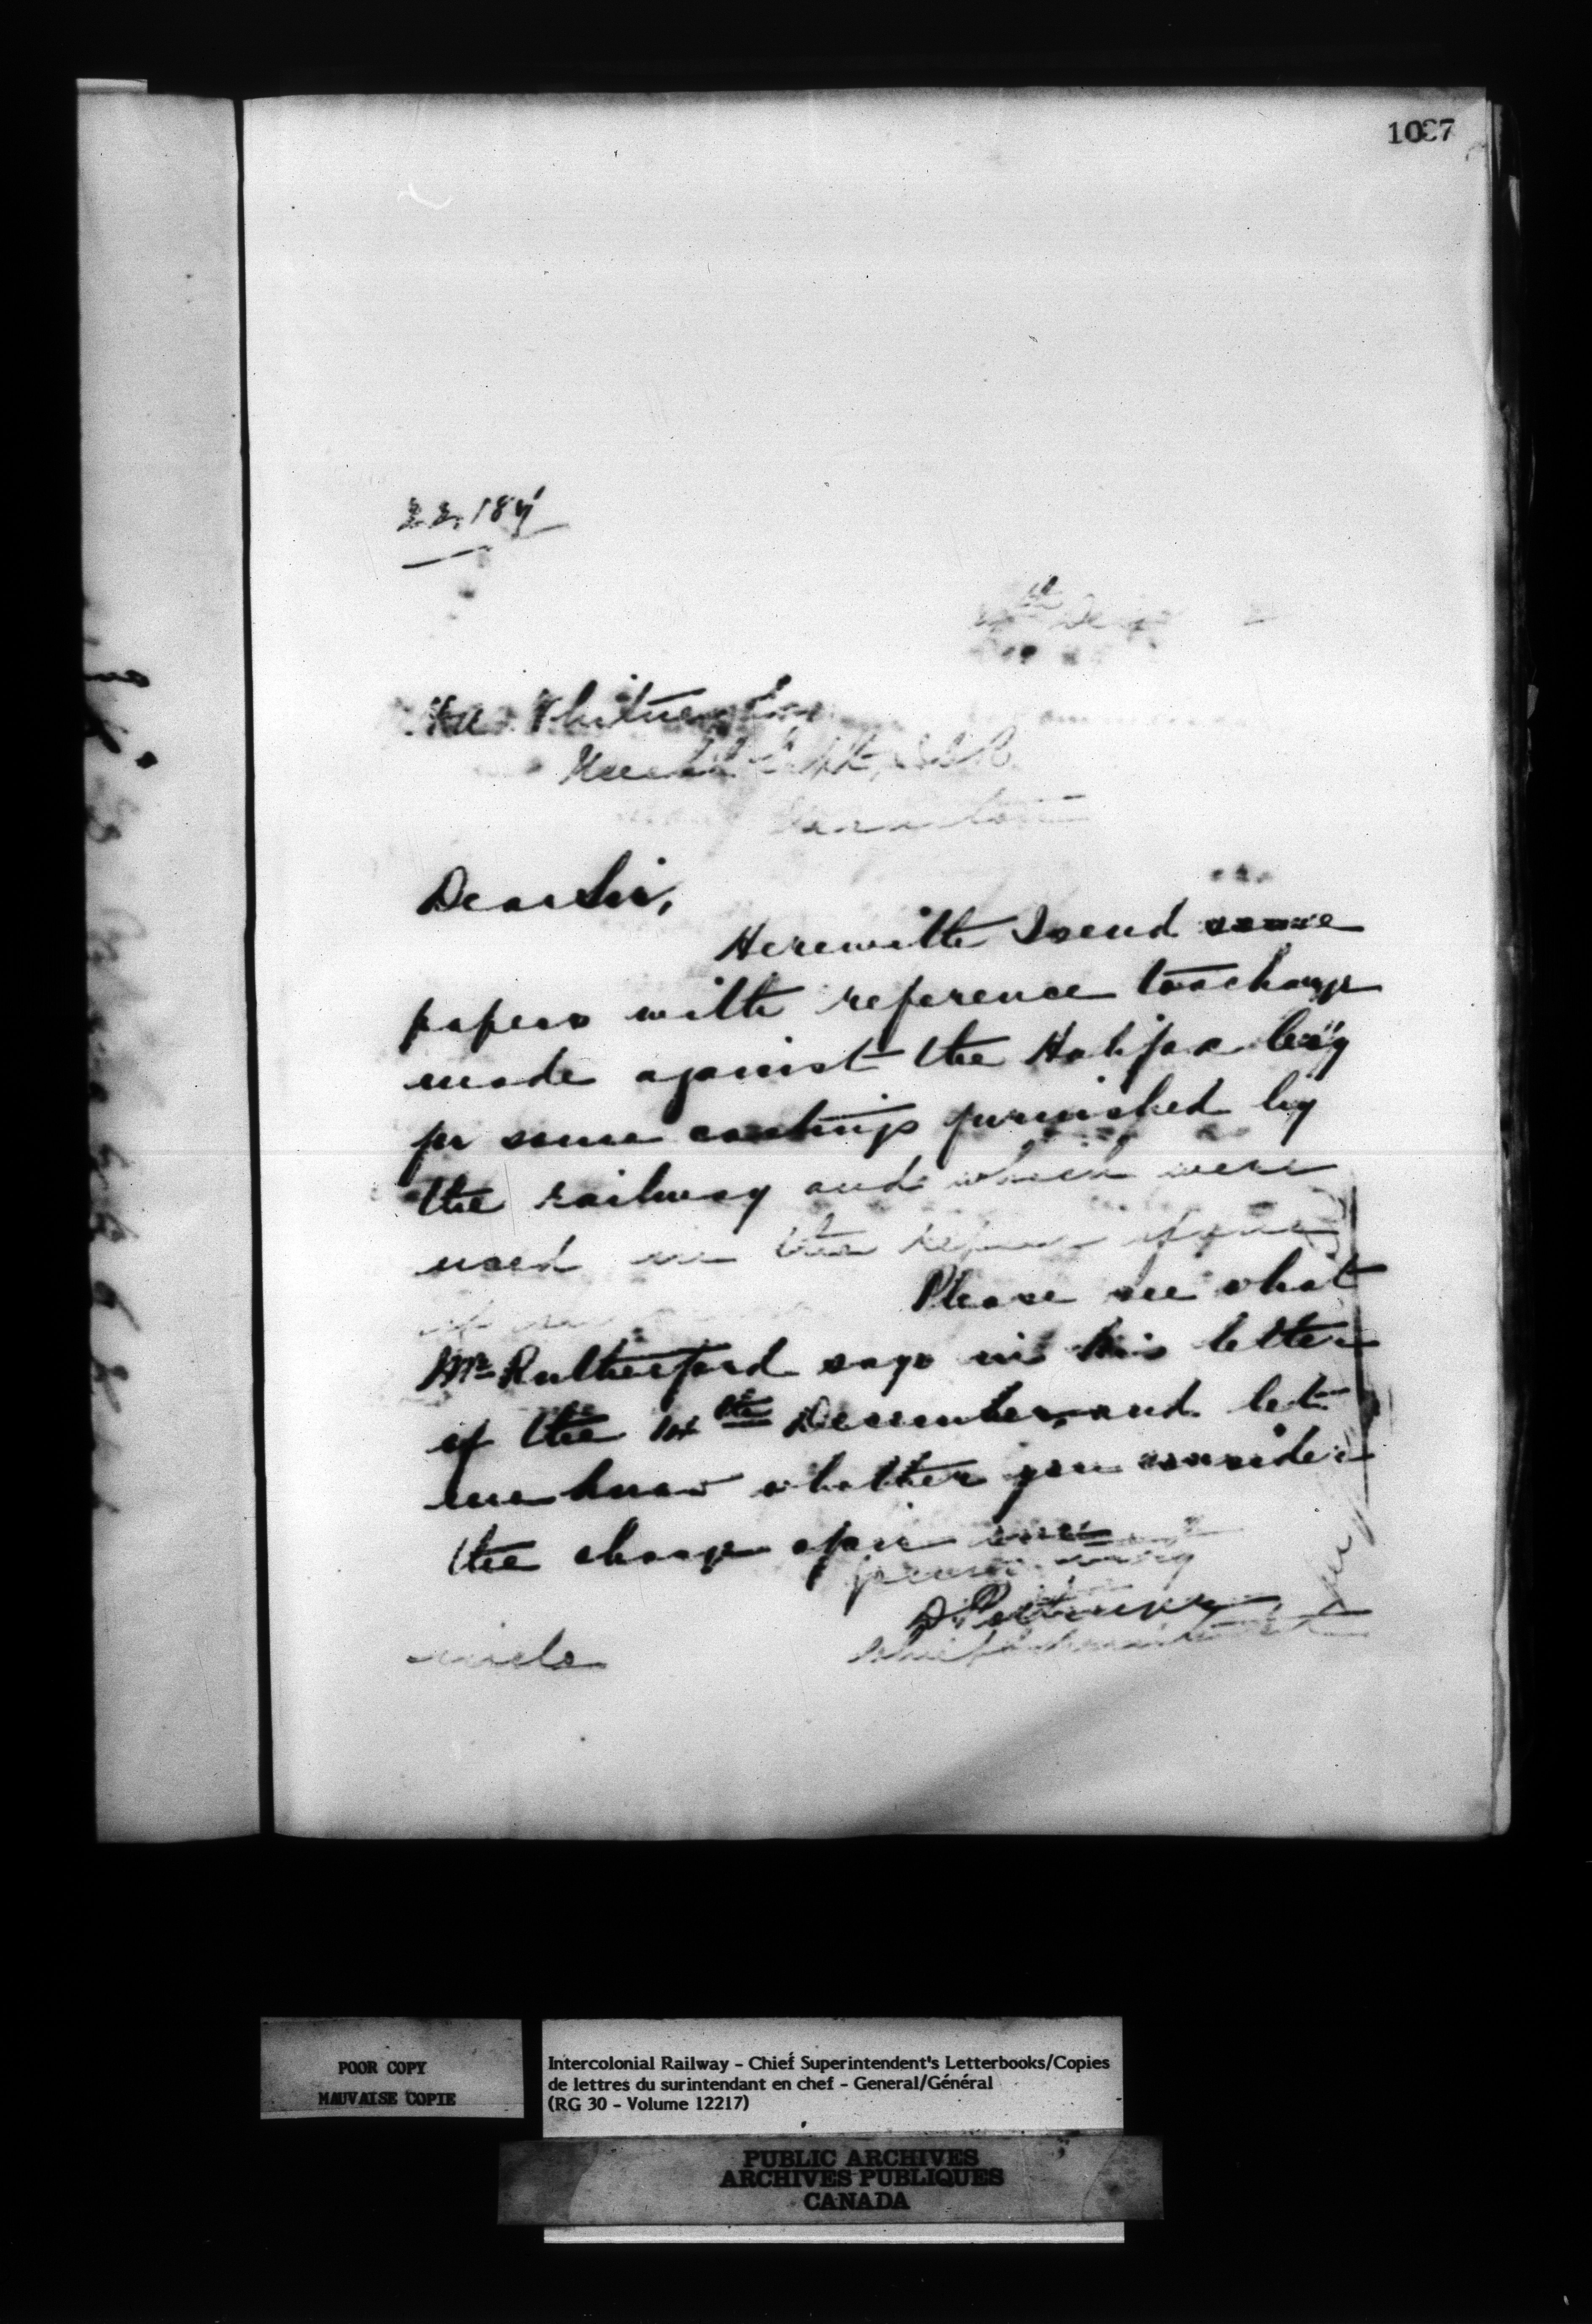 1037
22,184
th Dec
Whitney Esq
Mechl Supt, I.C.R.
Moncton
Dear Sir,
Herewith I send some
papers with reference to a charge
made against the Halifax Coy
for some castings furnished by
the railway and which were
used in the repair of one
of
Please see what
Mr Rutherford says in his letter
of the 14th December, and let
me know whether you consider
the charge a fair one
Yours truly
D. Pottinger
Chief Superintendent
encls
POOR COPY
MAUVAISE COPIE
Intercolonial Railway - Chief Superintendent's Letterbooks/Copies
de lettres du surintendant en chef - General/Général
(RG 30 - Volume 12217)
PUBLIC ARCHIVES
ARCHIVES PUBLIQUES
CANADA